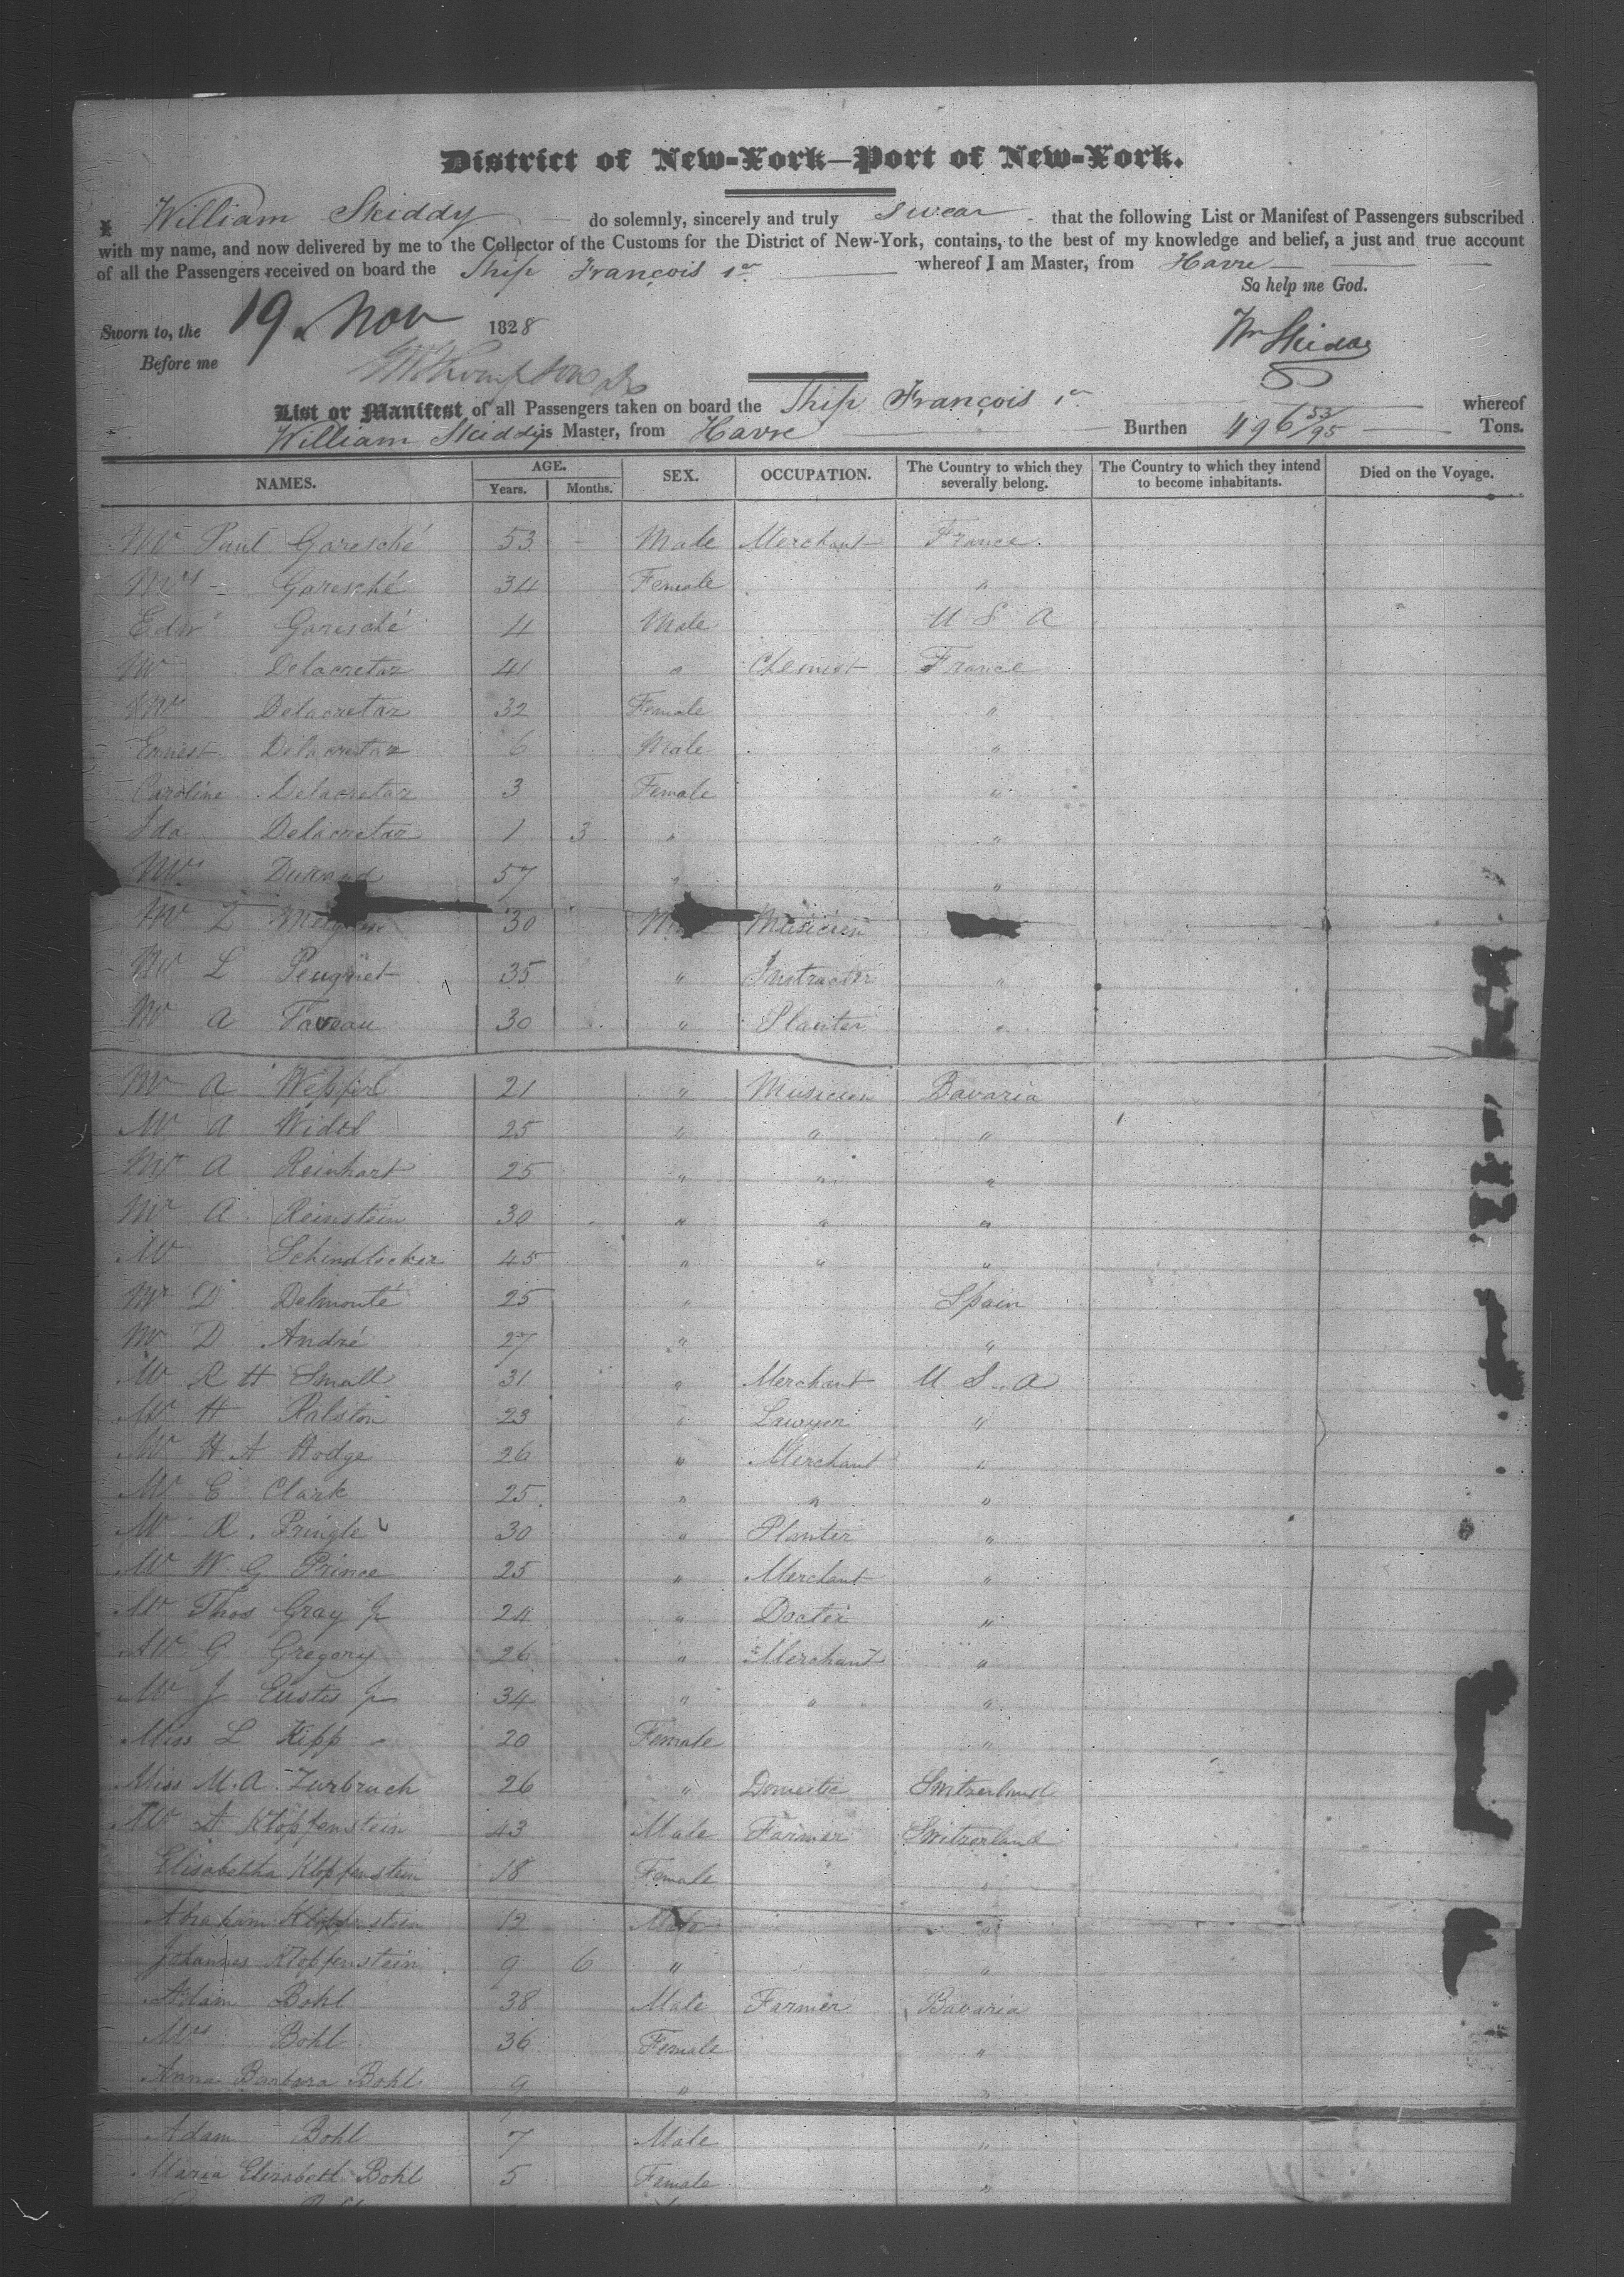 District of New-York—Port of New-York.
I, William Skiddy do solemnly, sincerely and truly swear that the following List or Manifest of Passengers subscribed
with my name, and now delivered by me to the Collector of the Customs for the District of New-York, contains, to the best of my knowledge and belief, a just and true account
of all the Passengers received on board the Ship François 1er whereof I am Master, from Havre
So help me God.
Sworn to, the 19 Nov 1828
Wm Skiddy
Before me
List or Manifest of all Passengers taken on board the Ship François 1er whereof
William Skiddy is Master, from Havre Burthen 496 53/95 Tons.
NAMES. AGE. Years. Months. SEX. OCCUPATION. The Country to which they severally belong. The Country to which they intend to become inhabitants. Died on the Voyage.
Mr Paul Garesché 53 - Male Merchant France
Mrs - Garesché 34 Female "
Edwd Garesché 4 Male U S A
Mr Delacretaz 41 " Chemist France
Mrs Delacretaz 32 Female "
Ernest Delacretaz 6 Male "
Caroline Delacretaz 3 Female "
Ida Delacretaz 1 3 " "
Mrs Durand 57 " "
Mr Z 30 Musician
Mr L Peugnet 35 " Instructor "
Mr A Faveau 30 " Planter "
Mr A Wepferl 21 " Musician Bavaria
Mr A Widel 25 " " "
Mr A Reinhart 25 " " "
Mr A Reinstein 30 " " "
Mr Schindlecker 45 " " "
Mr D Delmonté 25 " Spain
Mr D André 27 " "
Mr R H Small 31 " Merchant U S A
Mr H Ralston 23 " Lawyer "
Mr H A Hodge 26 " Merchant "
Mr E Clark 25 " " "
Mr R. Pringle 30 " Planter "
Mr W. G Prince 25 " Merchant "
Mr Thos Gray Jr 24 " Doctor "
Mr G Gregory 26 " Merchant "
Mr J Eustis Jr 34 " " "
Miss L Kipp 20 Female "
Miss M. A. Zurbruch 26 " Domestic Switzerland
Mr A Klopfenstein 43 Male Farmer Switzerland
Elisabetha Klopfenstein 18 Female "
Abraham Klopfenstein 12 Male "
Johannes Klopfenstein 9 6 " "
Adam Bohl 38 Male Farmer Bavaria
Mrs Bohl 36 Female "
Anna Barbara Bohl 9 " "
Adam Bohl 7 Male "
Maria Elizabeth Bohl 5 Female "